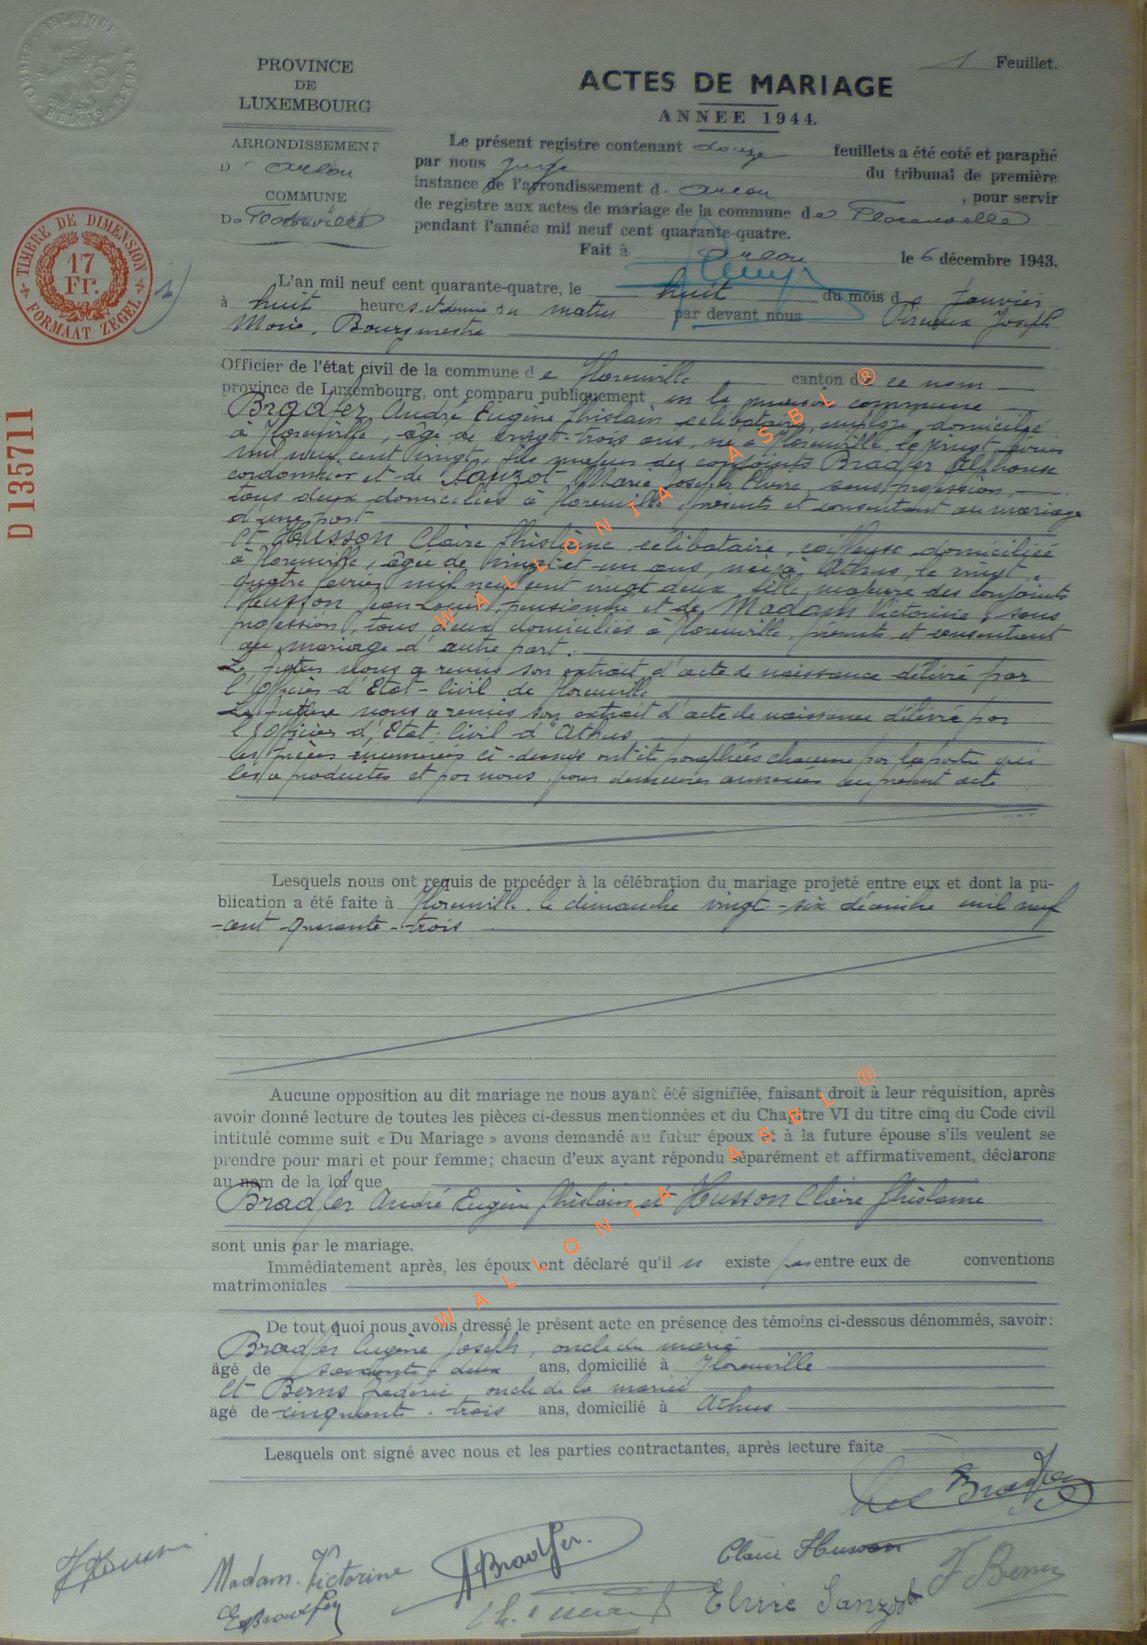 1 Feuillet.
PROVINCE
DE
LUXEMBOURG
ACTES DE MARIAGE
ANNEE 1944.
ARRONDISSEMENT
D'Arlon
COMMUNE
De Florenville
Le présent registre contenant douze feuillets a été coté et paraphé
par nous juge du tribunal de première
instance de l'arrondissement d'Arlon, pour servir
de registre aux actes de mariage de la commune de Florenville
pendant l'année mil neuf cent quarante-quatre.
Fait à Arlon le 6 décembre 1943.
TIMBRE DE DIMENSION
17
Fr.
FORMAAT ZEGEL
D 135711
1)
L'an mil neuf cent quarante-quatre, le huit du mois de Janvier
à huit heures et demie du matin par devant nous Joseph
Marie, Bourgmestre
Officier de l'état civil de la commune de Florenville canton de ce nom
province de Luxembourg, ont comparu publiquement en la maison commune
Bradfer André Eugène Ghislain célibataire, employé, domicilié
à Florenville, âgé de vingt-trois ans, né à Florenville, le vingt février
mil neuf cent vingt, fils majeur des conjoints Bradfer Alphonse
cordonnier et de Sanzot Marie Joseph Elvire, sans profession,
tous deux domiciliés à Florenville présents et consentant au mariage
d'une part
Et Husson Claire Ghislaine, célibataire, coiffeuse domiciliée
à Florenville, âgée de vingt et un ans, née à Athus, le vingt
quatre février mil neuf cent vingt deux, fille majeure des conjoints
Husson Jean-Louis, pensionné et de Madam Victorine, sans
profession, tous deux domiciliés à Florenville, présents et consentant
au mariage d'autre part.
Le futur nous a remis son extrait d'acte de naissance délivré par
l'Officier d'Etat-Civil de Florenville
La future nous a remis son extrait d'acte de naissance délivré par
l'Officier d'Etat-Civil d'Athus
Les pièces énumérées ci-dessus ont été paraphées chacune par la partie qui
les a produites et par nous pour demeurer annexées au présent acte
Lesquels nous ont requis de procéder à la célébration du mariage projeté entre eux et dont la pu-
blication a été faite à Florenville le dimanche vingt-six décembre mil neuf
-cent quarante-trois
Aucune opposition au dit mariage ne nous ayant été signifiée, faisant droit à leur réquisition, après
avoir donné lecture de toutes les pièces ci-dessus mentionnées et du Chapitre VI du titre cinq du Code civil
intitulé comme suit « Du Mariage » avons demandé au futur époux et à la future épouse s'ils veulent se
prendre pour mari et pour femme; chacun d'eux ayant répondu séparément et affirmativement, déclarons
au nom de la loi que
Bradfer André Eugène Ghislain et Husson Claire Ghislaine
sont unis par le mariage.
Immédiatement après, les époux ont déclaré qu'il n' existe pas entre eux de conventions
matrimoniales
De tout quoi nous avons dressé le présent acte en présence des témoins ci-dessous dénommés, savoir:
Bradfer Eugène Joseph, oncle du marié
âgé de soixante-deux ans, domicilié à Florenville
Et Berns Frédéric, oncle de la mariée
âgé de cinquante-trois ans, domicilié à Athus
Lesquels ont signé avec nous et les parties contractantes, après lecture faite
Bradfer
Husson
Madam. Victorine
ABradfer.
Claire Husson
F Berns
EBradfer
Elvire Sanzot
WALLONIA ASBL ®
WALLONIA ASBL ®